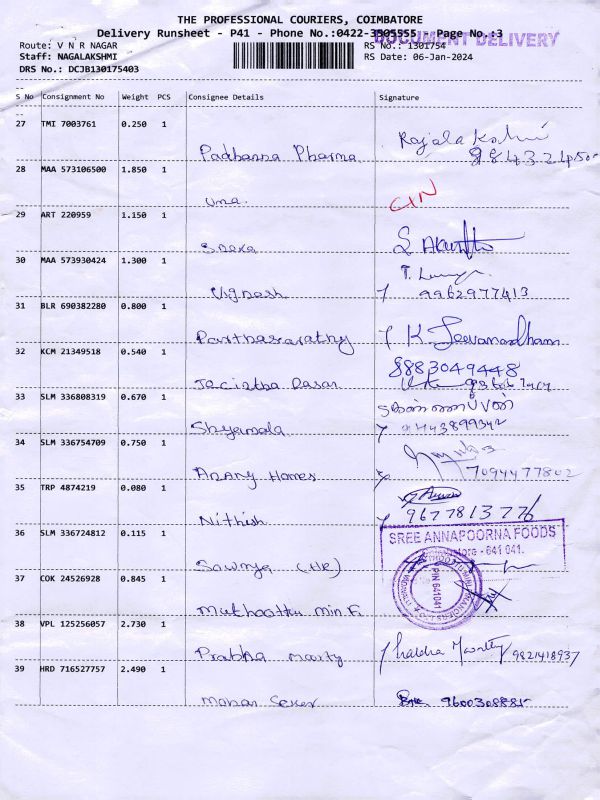 THE PROFESSIONAL COURIERS, COIMBATORE
Delivery Runsheet - P41 - Phone No.:0422-3305555 Page No.:3
DOCUMENT DELIVERY
Route: V N R NAGAR RS No.: 1301754
Staff: NAGALAKSHMI RS Date: 06-Jan-2024
DRS No.: DCJB130175403
S No Consignment No Weight PCS Consignee Details Signature
27 TMI 7003761 0.250 1
Padbanna Pharma Rajalakshmi
28 MAA 573106500 1.850 1
Uma
29 ART 220959 1.150 1
Sneka
30 MAA 573930424 1.300 1
Vignesh 9962977413
31 BLR 690382280 0.800 1
Parthasarathy K Jeevanandham
32 KCM 21349518 0.540 1
8883049448
33 SLM 336808319 0.670 1
Shyamala 9443899342
34 SLM 336754709 0.750 1
Anany Homes 7094477802
35 TRP 4874219 0.080 1
Nithish 9677813776
36 SLM 336724812 0.115 1
SREE ANNAPOORNA FOODS
641 041.
Sowmya (HR)
37 COK 24526928 0.845 1
PIN 641041
Muthoottu Min Fi
38 VPL 125256057 2.730 1
Prabha marty Prabha Moorthy 9821418937
39 HRD 716527757 2.490 1
Mohan Seker 9600308885